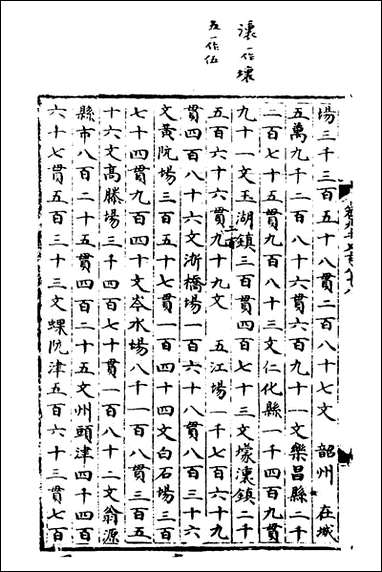 瀼一作壤
五一作伍
場三千三百五十八貫二百八十七文 韶州 在城
五萬九千二百八十六貫六百九十一文樂昌縣二千
二百七十五貫九百八十三文仁化縣一千四百九貫
九十一文玉湖鎮三百貫四百七十三文濛瀼鎮二千
五百六十六貫二百九十九文 五江場一千七百六十九
貫四百八十六文浙橋場一百六十八貫八百三十六
文黃阬場三百五十七貫一百四十四文白石場三百
七十四貫九百四十文岑水場八千一百八貫三百五
十六文高勝場三千四百七十貫一百八十二文翁源
縣市八百二十五貫四百二十五文州頭津四千四百
六十七貫五百三十三文螺阬津五百六十三貫七百